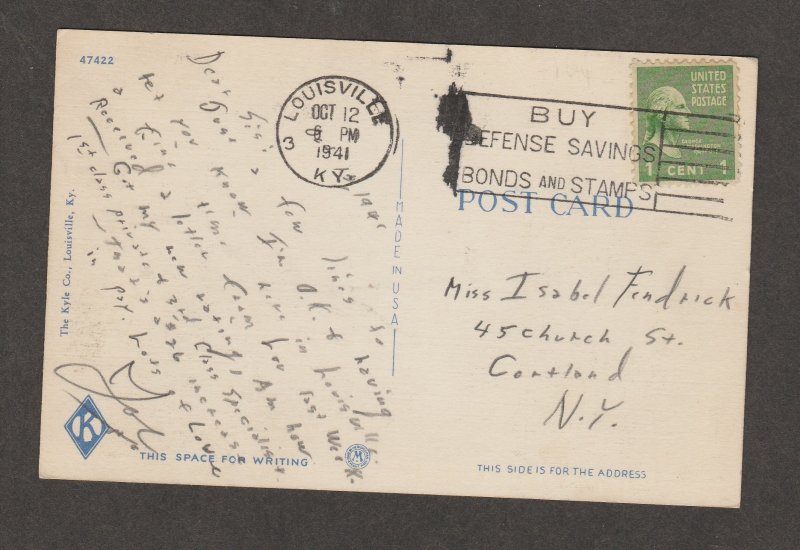 47422
LOUISVILLE
OCT 12
6 PM
1941
KY.
3
BUY
DEFENSE SAVINGS
BONDS AND STAMPS
UNITED
STATES
POSTAGE
1 CENT 1
POST CARD
MADE IN USA
The Kyle Co., Louisville, Ky.
Miss Isabel Fendrick
45 Church St.
Cortland
N.Y.
Just a few lines to
let you know I'm O.K. & having
a fine time here in Louisville.
Received a letter from you last week.
Got my new rating, Am now
1st class private & 3rd class specialist
in
K
THIS SPACE FOR WRITING
M
THIS SIDE IS FOR THE ADDRESS